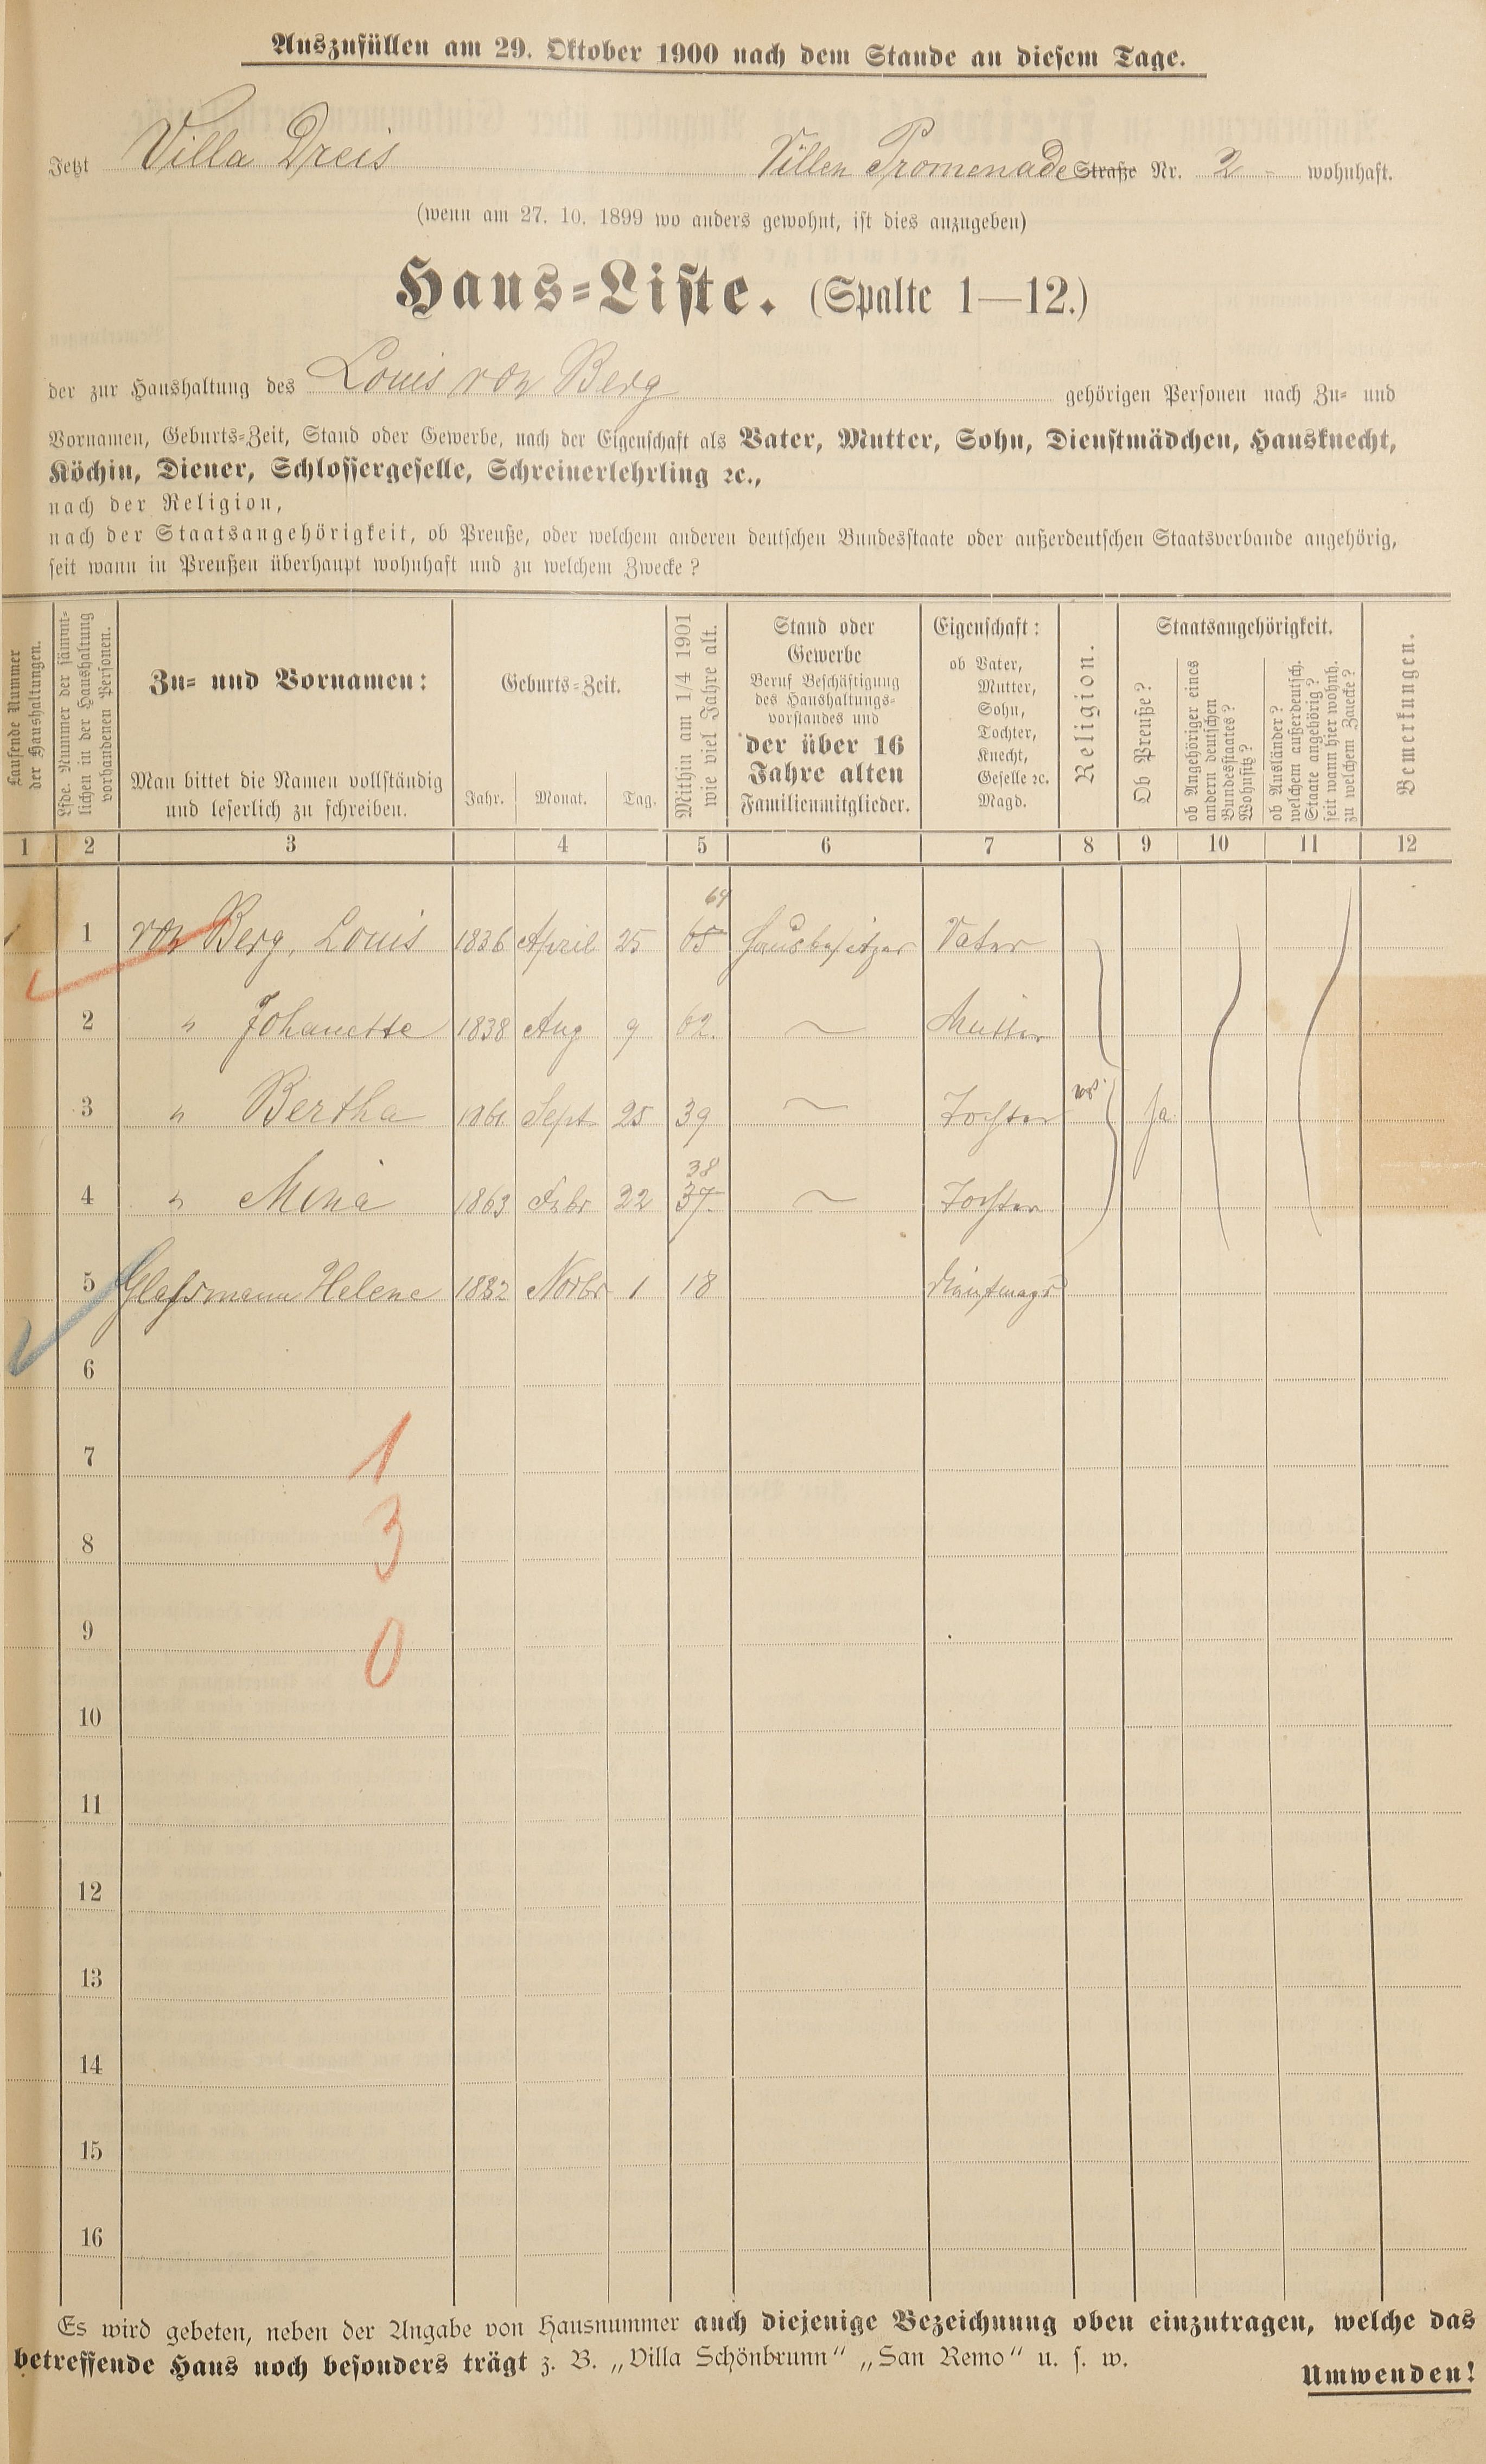 Auszufüllen am 29. Oktober 1900 nach dem Stande an diesem Tage.
Jetzt Villa Dreis Villen Promenade Straße Nr. 2 wohnhaft.
(wenn am 27. 10. 1899 wo anders gewohnt, ist dies anzugeben)
Haus-Liste. (Spalte 1—12.)
der zur Haushaltung des Louis von Berg gehörigen Personen nach Zu- und
Vornamen, Geburts-Zeit, Stand oder Gewerbe, nach der Eigenschaft als Vater, Mutter, Sohn, Dienstmädchen, Hausknecht,
Köchin, Diener, Schlossergeselle, Schreinerlehrling ꝛc.,
nach der Religion,
nach der Staatsangehörigkeit, ob Preuße, oder welchem anderen deutschen Bundesstaate oder außerdeutschen Staatsverbande angehörig,
seit wann in Preußen überhaupt wohnhaft und zu welchem Zwecke?
Laufende Nummer
der Haushaltungen.
Lfde. Nummer der sämmt-
lichen in der Haushaltung
vorhandenen Personen.
Zu- und Vornamen:
Man bittet die Namen vollständig
und leserlich zu schreiben.
Geburts-Zeit.
Jahr. Monat. Tag.
Mithin am 1/4 1901
wie viel Jahre alt.
Stand oder
Gewerbe
Beruf Beschäftigung
des Haushaltungs-
vorstandes und
der über 16
Jahre alten
Familienmitglieder.
Eigenschaft:
ob Vater,
Mutter,
Sohn,
Tochter,
Knecht,
Geselle ꝛc.
Magd.
Religion.
Staatsangehörigkeit.
Ob Preuße?
ob Angehöriger eines
andern deutschen
Bundesstaates?
Wohnsitz?
ob Ausländer?
welchem außerdeutsch.
Staate angehörig?
seit wann hier wohnh.
zu welchem Zwecke?
Bemerkungen.
1 2 3 4 5 6 7 8 9 10 11 12
64
1 von Berg, Louis 1836 April 25 65 Hausbesitzer Vater
2 " Johanette 1838 Aug 9 62. Mutter
3 " Bertha 1861 Sept 25 39 Tochter Ja
38
4 " Mina 1863 Febr 22 37. Tochter
5 Glassmann Helene 1882 Novbr 1 18 Dienstmagd
6
7 1
8 3
9 0
10
11
12
13
14
15
16
Es wird gebeten, neben der Angabe von Hausnummer auch diejenige Bezeichnung oben einzutragen, welche das
betreffende Haus noch besonders trägt z. B. „Villa Schönbrunn" „San Remo" u. s. w.
Umwenden!